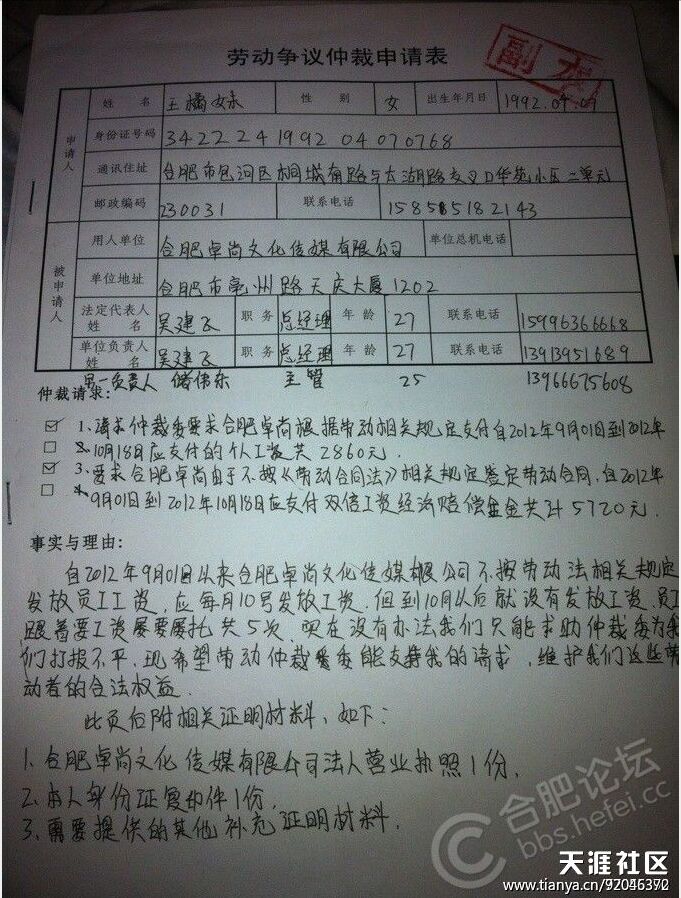 劳动争议仲裁申请表
副本
申请人
姓 名 王橘妹 性 别 女 出生年月日 1992.04.07
身份证号码 342224199204070768
通讯住址 合肥市包河区桐城南路与太湖路交叉口华苑小区二单元
邮政编码 230031 联系电话 158565182143
被申请人
用人单位 合肥卓尚文化传媒有限公司 单位总机电话
单位地址 合肥市亳州路天庆大厦1202
法定代表人姓 名 吴建飞 职务 总经理 年龄 27 联系电话 15996366668
单位负责人姓 名 吴建飞 职务 总经理 年龄 27 联系电话 13913951689
另一负责人 储伟东 主管 25 13966675608
仲裁请求:
1.请求仲裁委要求合肥卓尚根据劳动相关规定支付自2012年9月01日到2012年
10月18日应支付的个人工资共2860元.
3.要求合肥卓尚由于不按《劳动合同法》相关规定签定劳动合同,自2012年
9月01日到2012年10月18日应支付双倍工资经济赔偿金金共计5720元.
事实与理由:
自2012年9月01日以来合肥卓尚文化传媒有限公司不按劳动法相关规定
发放员工工资,应每月10号发放工资,但到10月以后就没有发放工资,员工
跟着要工资屡要屡托共5次,现在没有办法我们只能求助仲裁委为我
们打报不平,现希望劳动仲裁委能支持我的请求,维护我们这些劳
动者的合法权益.
此页后附相关证明材料,如下:
1.合肥卓尚文化传媒有限公司法人营业执照1份,
2.本人身份证复印件1份.
3.需要提供的其他补充证明材料.
合肥论坛
bbs.hefei.cc
天涯社区
www.tianya.cn/92046392